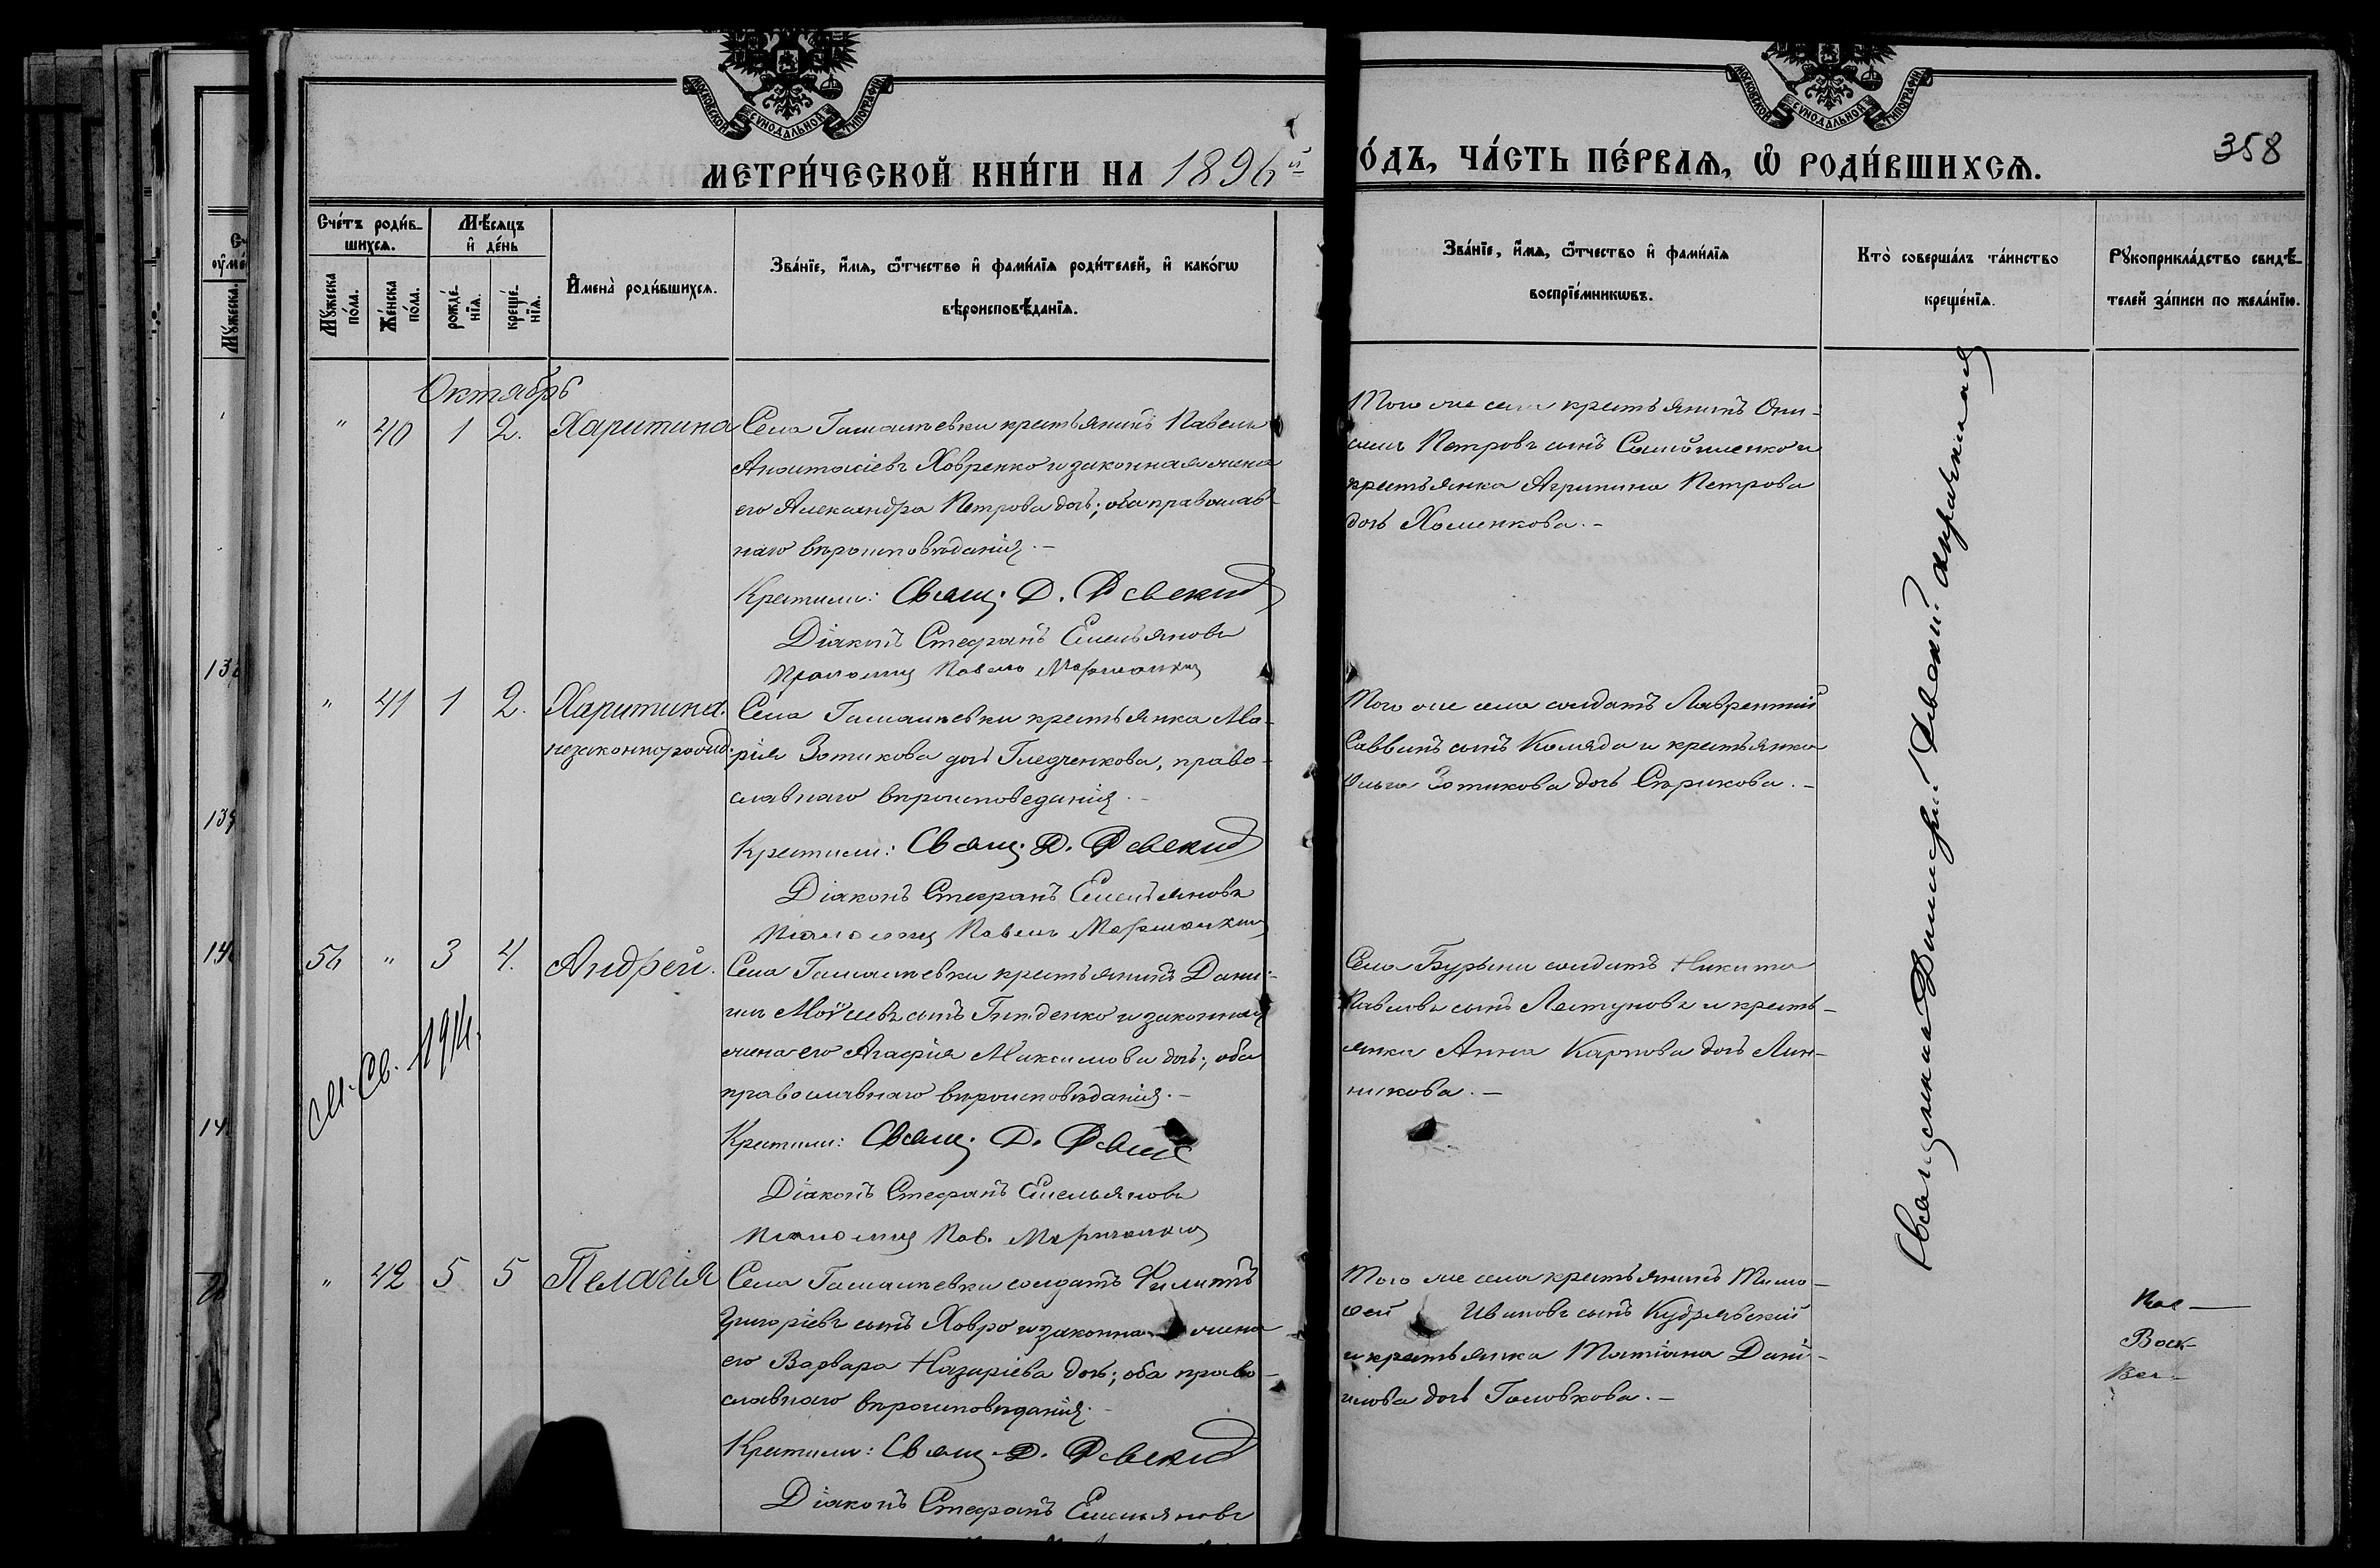 МОСКОВСКОЙ СѴНОДАЛЬНОЙ ТИПОГРАФІИ
МОСКОВСКОЙ СѴНОДАЛЬНОЙ ТИПОГРАФІИ
МЕТРИ́ЧЕСКОЙ КНИ́ГИ НА 1896й
О́ДЪ, ЧА́СТЬ ПЕ́РВАѦ, Ѽ РОДИ́ВШИХСѦ.
358
Сче́тъ роди́в-
шихсѧ.
Мѣ́сѧцъ
и҆ де́нь
Мꙋ́жеска
по́ла.
Же́нска
по́ла.
рожде́-
нїѧ.
креще́-
нїѧ.
И҆мена̀ роди́вшихсѧ.
Зва́нїе, и҆́мѧ, ѻ҆́тчество и҆ фами́лїѧ роди́телей, и҆ како́гѡ
вѣроисповѣ́данїѧ.
Зва́нїе, и҆́мѧ, ѻ҆́тчество и҆ фами́лїѧ
воспрїе́мникѡвъ.
Кто̀ соверша́лъ та́инство
креще́нїѧ.
Рꙋкоприкла́дство свидѣ́-
телей за́писи по жела́нїю.
Октябрь
" 40 1 2. Харитина
Села Гамалѣевки крестьянинъ Павелъ
Анастасіевъ Ховренко и законная жена
его Александра Петрова дочь; оба православ-
наго вѣроисповѣданія.-
Крестили: Свящ. Д.
Діаконъ Стефанъ Емельяновъ
Псаломщ Павелъ
Того же села крестьянинъ
Петровъ сынъ
крестьянка Агрипина Петрова
дочь Хоменкова.-
" 41 1 2. Харитина.
незаконнорожд.
Села Гамалѣевки крестьянка Ма-
рія Зотикова дочь Гледченкова, право-
славнаго вѣроисповеданія.-
Крестили: Свящ. Д.
Діаконъ Стефанъ Емельяновъ
Псаломщ Павелъ
Того же села солдатъ Лаврентій
Саввинъ сынъ Коляда и крестьянка
Ольга Зотикова дочь Сѣрикова.-
56 " 3 4. Андрей.
Села Гамалѣевки крестьянинъ Дани-
илъ Моѵсеевъ сынъ Гниденко и законная
жена его Агафія Максимова дочь; оба
православнаго вѣроисповѣданія.-
Крестили: Свящ. Д.
Діаконъ Стефанъ Емельяновъ
Псаломщ Пав.
Села Бурыни солдатъ Никита
Павловъ сынъ Ластуновъ и кресть-
янка Анна Карпова дочь Лин-
никова.-
М. Св. 1914.
" 42 5 5 Пелагія
Села Гамалѣевки солдатъ Филиппъ
Григоріевъ сынъ Ховро и законна жена
его Варвара Назаріева дочь; оба право-
славнаго вѣроисповѣданія.-
Крестили: Свящ Д.
Діаконъ Стефанъ Емельяновъ
Того же села крестьянинъ Тимо-
фей Ивановъ сынъ Кудрявскій
и крестьянка Татіана Дани-
илова дочь Головкова.-
Священникъ Димитрій
138
139